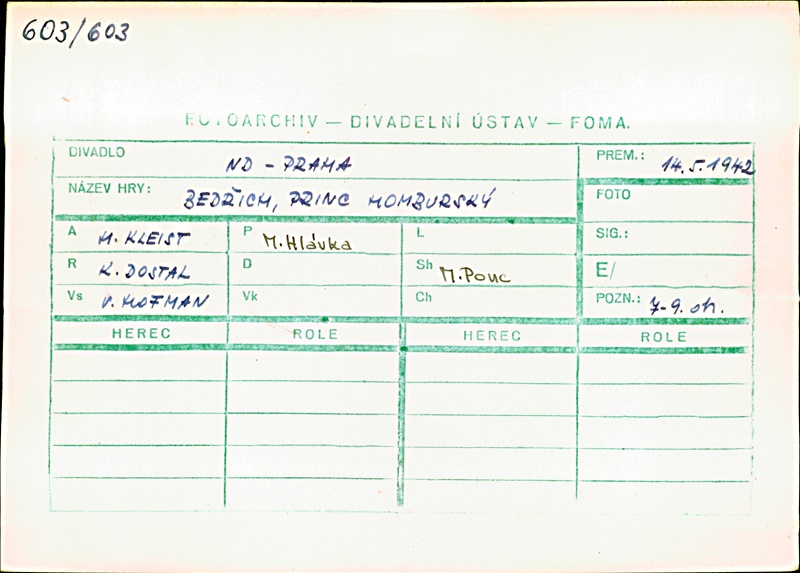 603/603
FOTOARCHIV — DIVADELNÍ ÚSTAV — FOMA.
DIVADLO ND - PRAHA PREM.: 14.5.1942
NÁZEV HRY: BEDŘICH, PRINC HOMBURSKÝ FOTO
A H. KLEIST P M. Hlávka L SIG.:
R K. DOSTAL D Sh M. Ponc E/
Vs V. HOFMAN Vk Ch POZN.: 7-9. oh.
HEREC ROLE HEREC ROLE